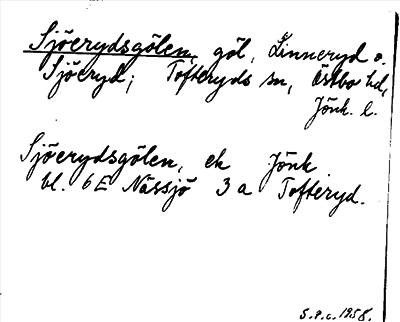 Sjöerydsgölen, göl, Linneryd o.
Sjöeryd; Tofteryds sn, Östbo hd,
Jönk. l.
Sjöerydsgölen, ek Jönk
bl. 6E Nässjö 3a Tofteryd.
S.P.C. 1958.